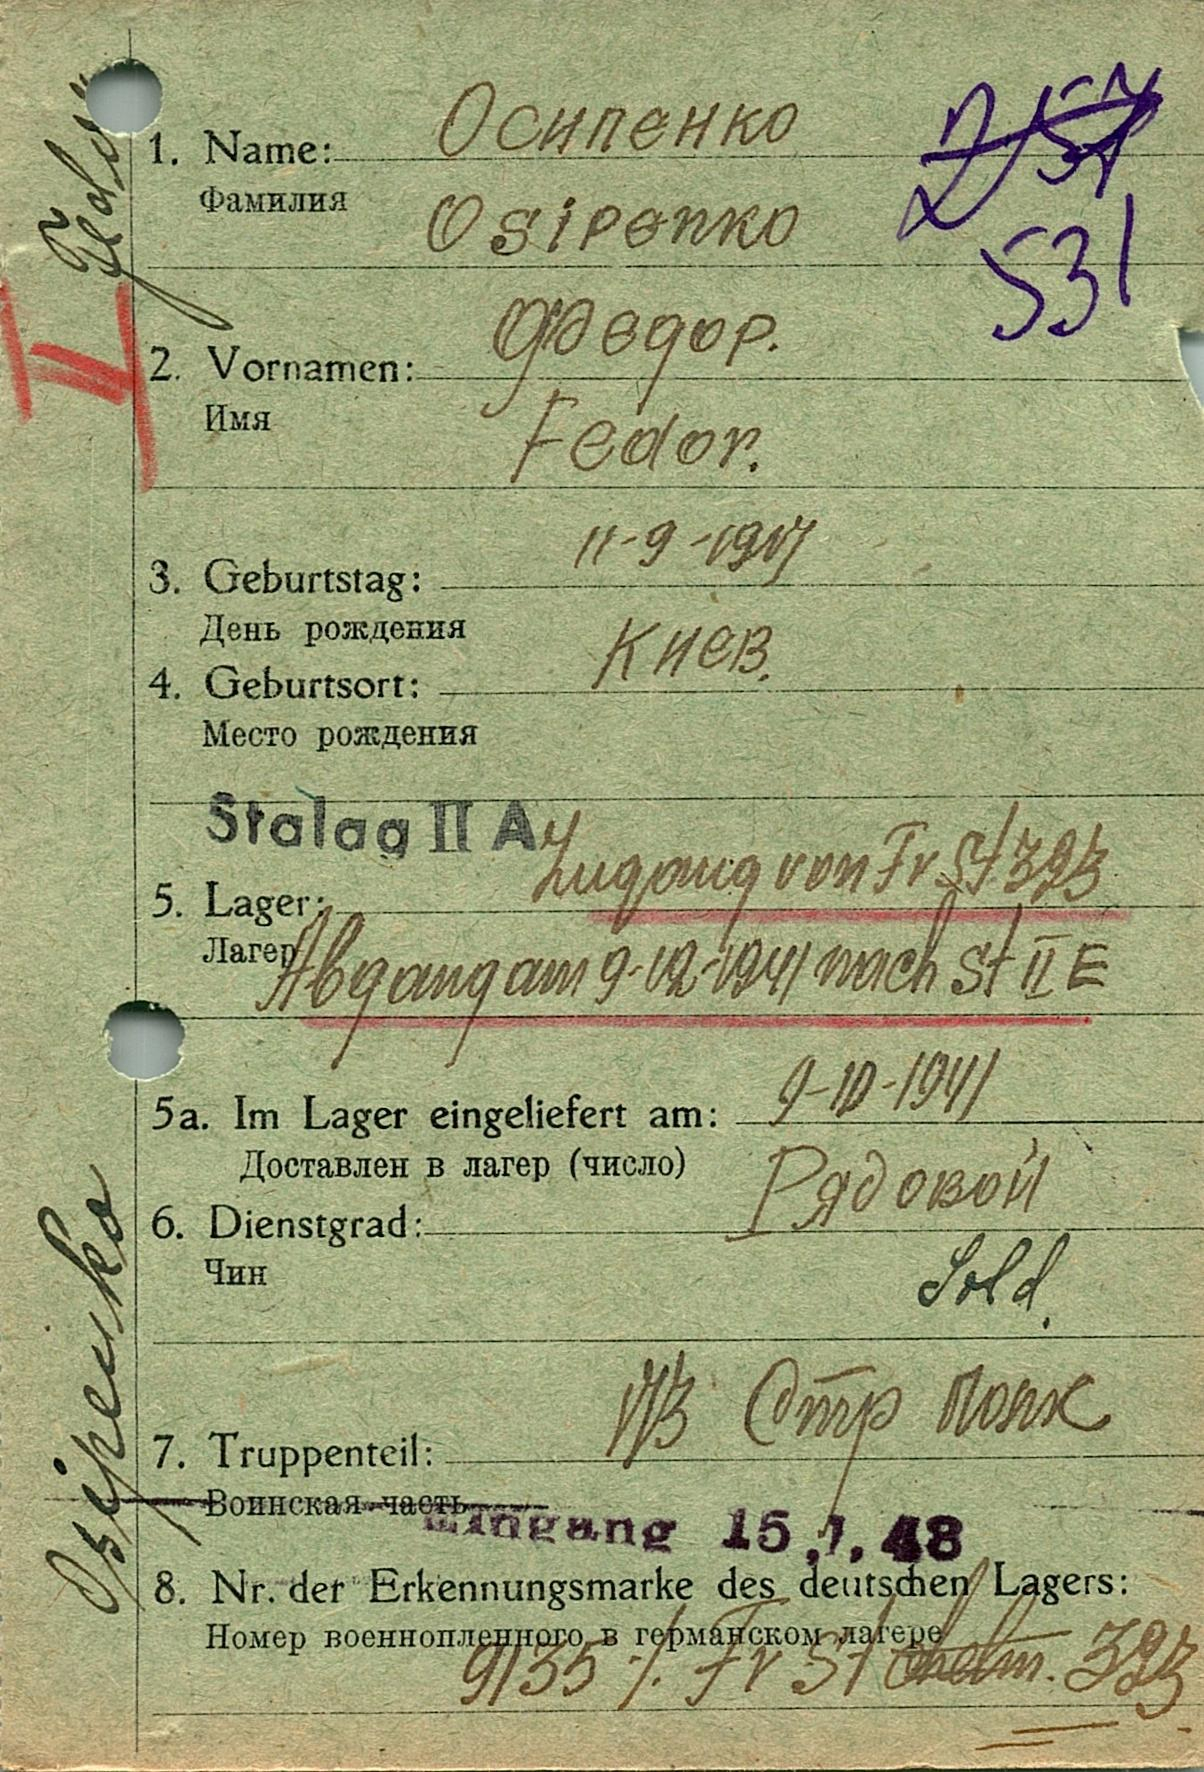 Осипенко
1. Name:
Фамилия
Osipenko
531
Федор.
2. Vornamen:
Имя
Fedor.
11-9-1917
3. Geburtstag:
День рождения
Киев.
4. Geburtsort:
Место рождения
Stalag II A
Zugang von Fr St 393
5. Lager:
Лагер
Abgang am 9-12-1941 nach St II E
5a. Im Lager eingeliefert am: 9-10-1941
Доставлен в лагер (число)
Рядовой
6. Dienstgrad:
Чин
Sold.
Стр полк
7. Truppenteil:
Воинская часть
Eingang 15.1.48
8. Nr. der Erkennungsmarke des deutschen Lagers:
Номер военнопленного в германском лагере
9135 /. Fr St 393
Osipenko